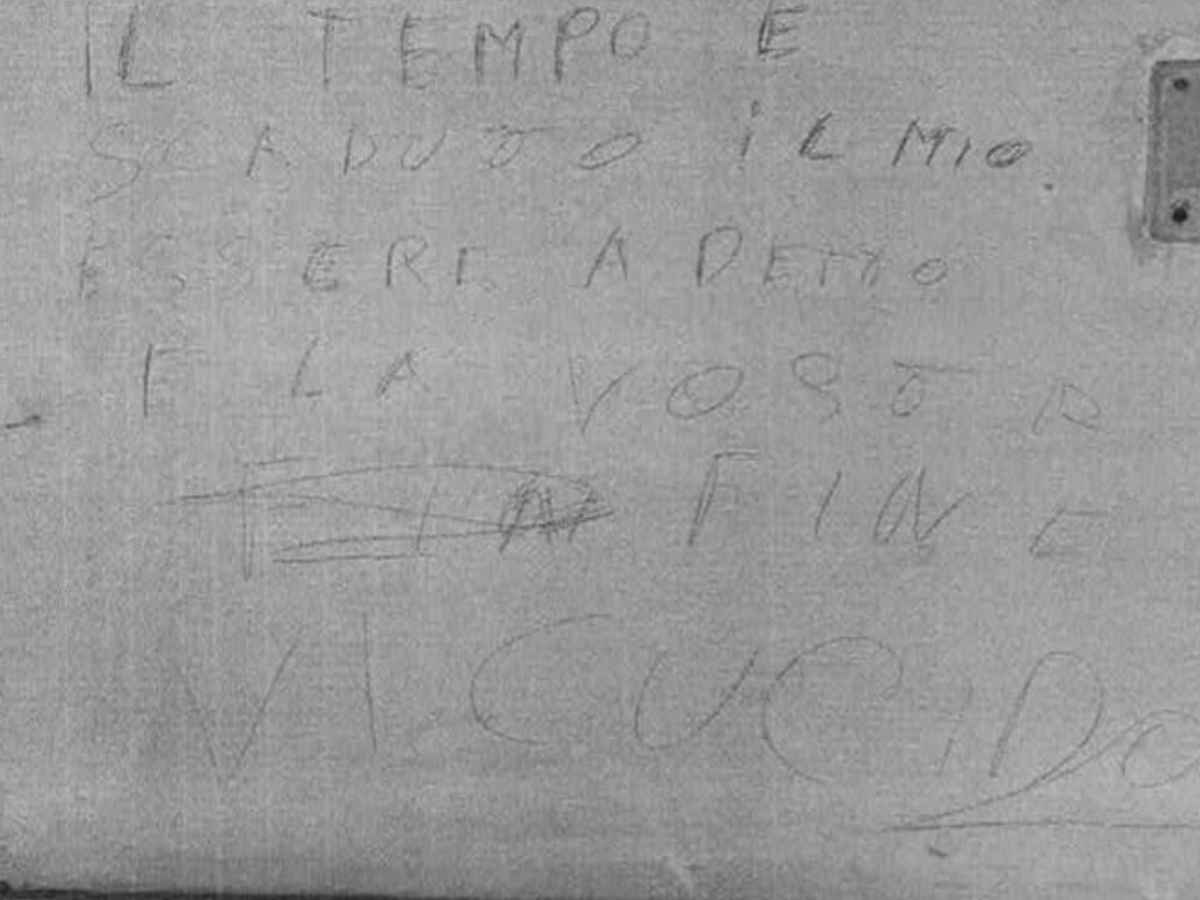 IL TEMPO E
SCADUTO iL MIO
ESSERE A DETTO
E LA VOSTR
FINE
VI CUCIDO